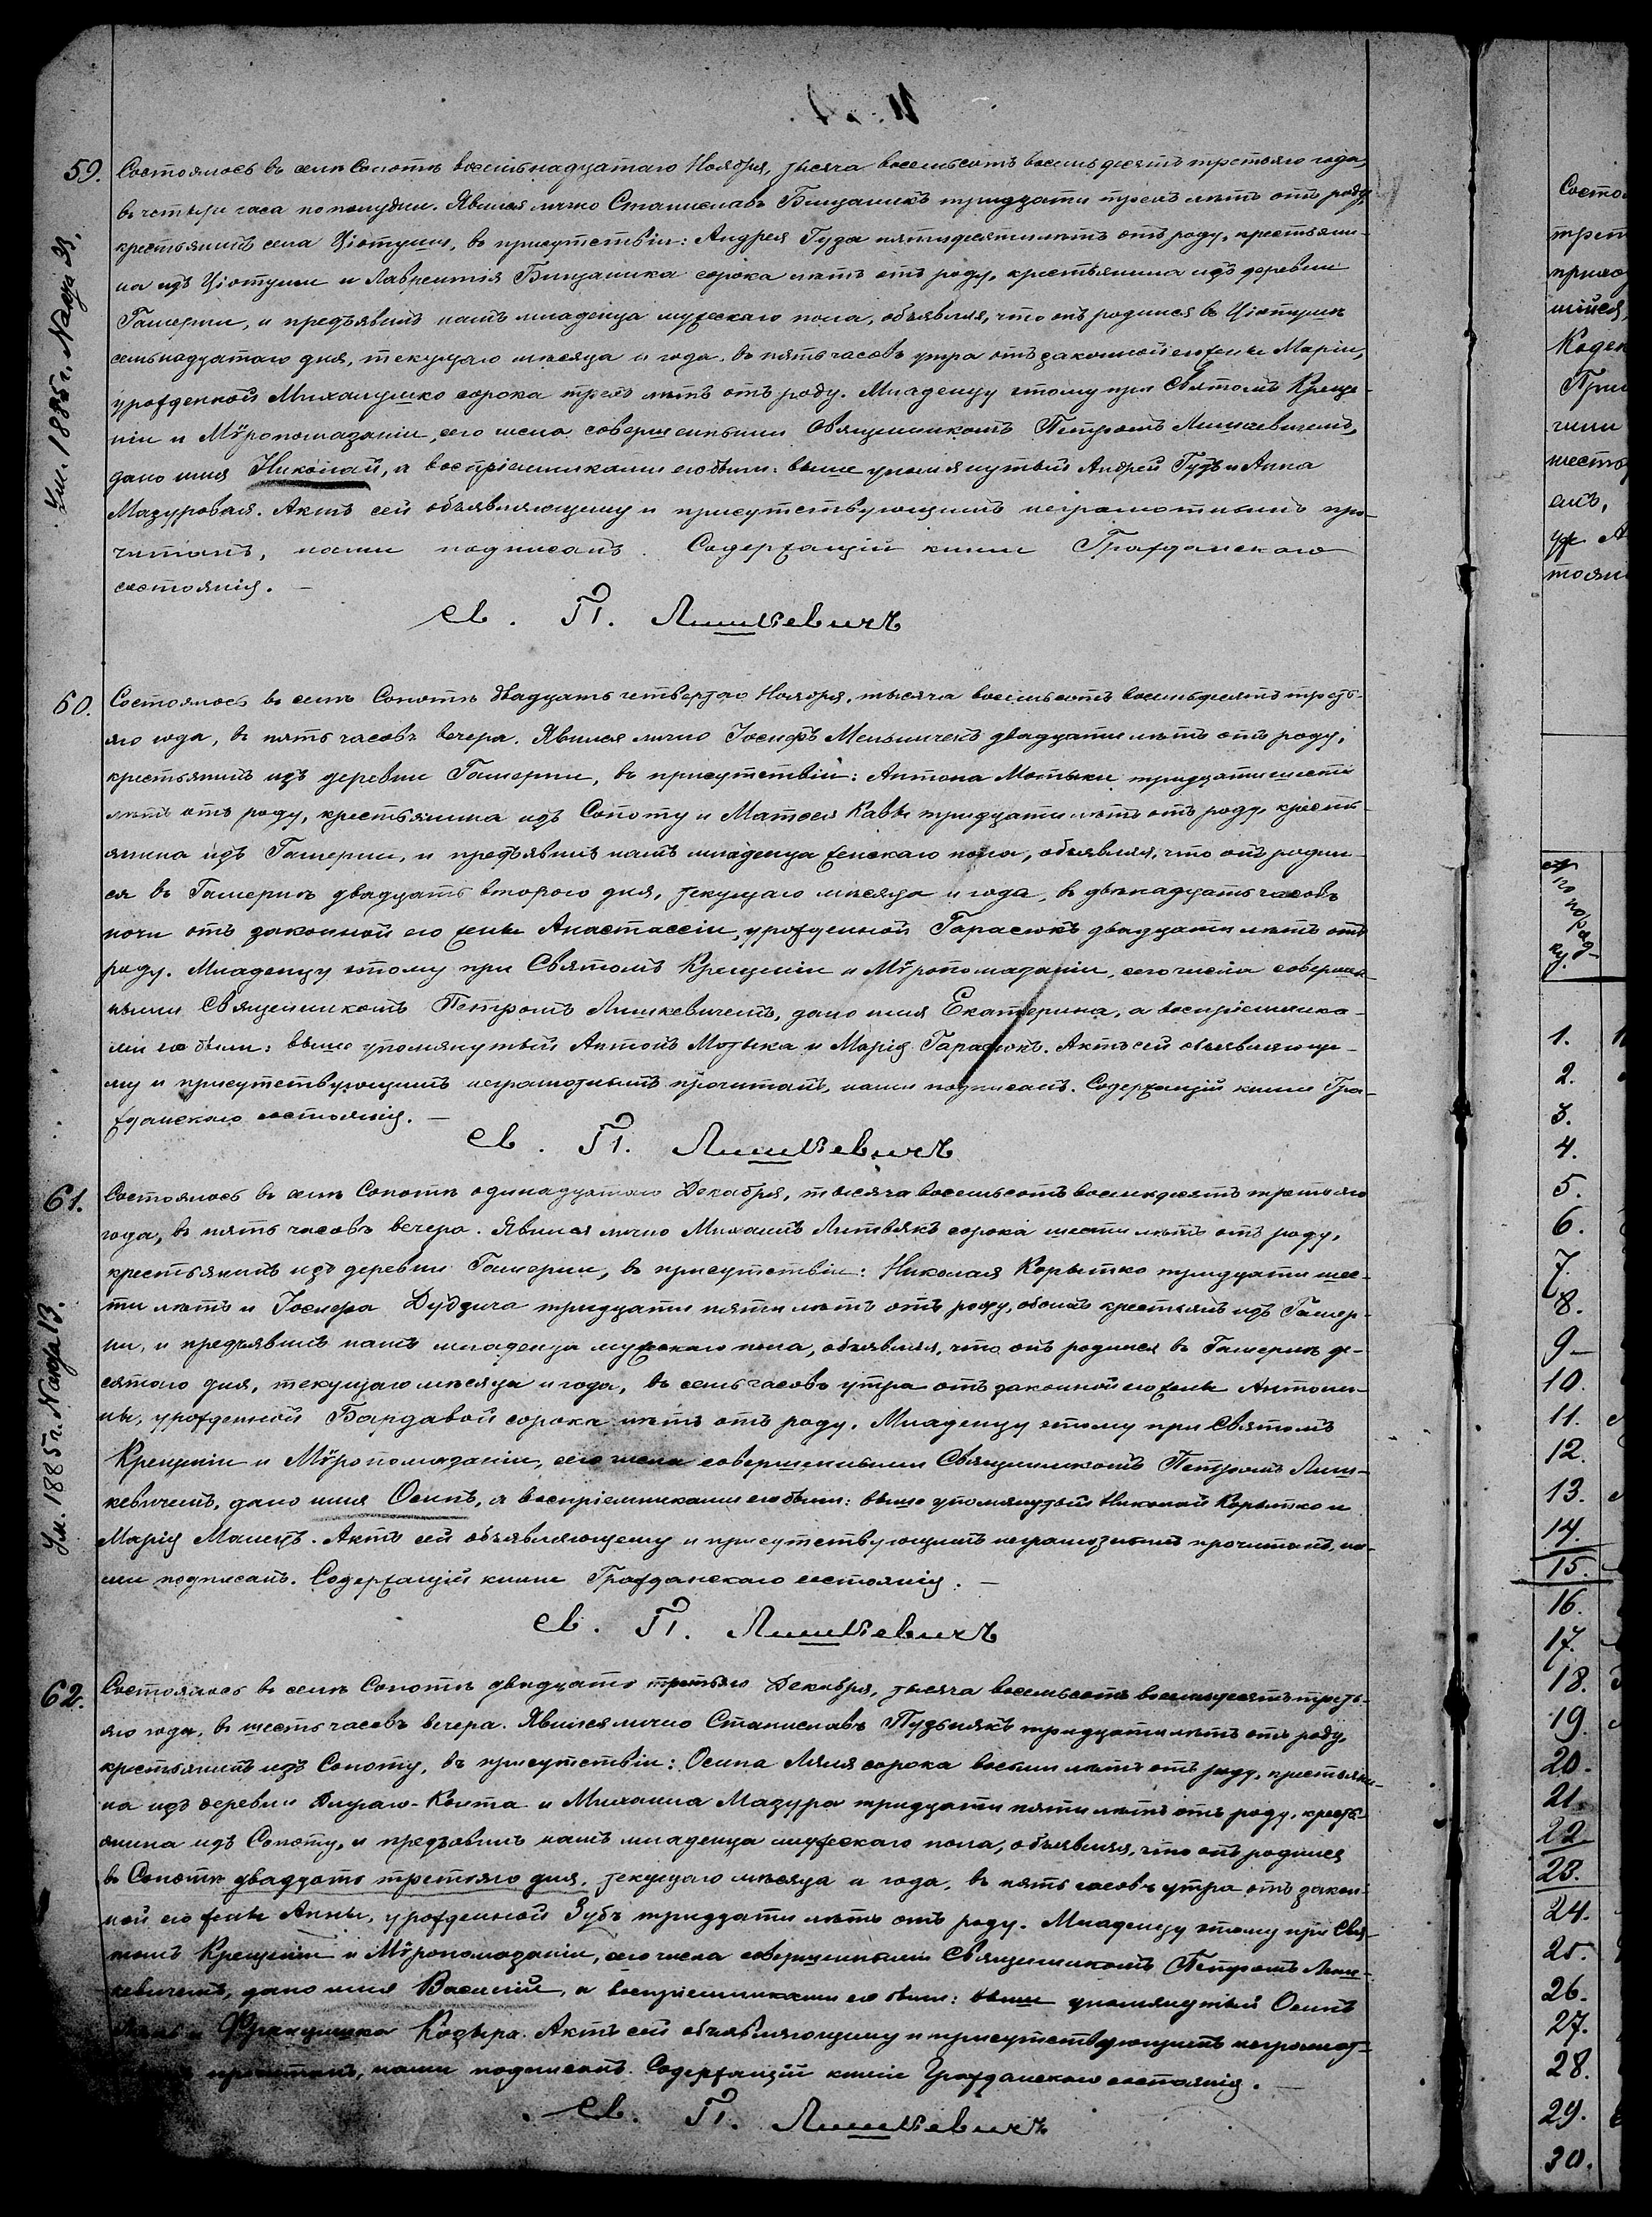 59. Состоялось въ селѣ Сопотѣ восемьнадцатаго Ноября, тысяча восемьсотъ восемьдесятъ третьяго года,
въ четыре часа по полудни. Явился лично Станиславъ Бицаникъ тридцати трехъ лѣтъ отъ роду,
крестьянинъ села Цiотуши, въ присутствiи: Андрея Гуда пятидесяти лѣтъ отъ роду, крестьяни-
на изъ Цiотуши и Лаврентiя Бицаника сорока лѣтъ отъ роду, крестьянина изъ деревни
Гамерни, и предъявилъ намъ младенца мужескаго пола, объявляя, что онъ родился въ Цiотушѣ
семьнадцатаго дня, текущаго мѣсяца и года, въ пять часовъ утра отъ законной его жены Марiи,
урожденной сорока трехъ лѣтъ отъ роду. Младенцу этому при Святомъ Креще-
нiи и Мѵропомазанiи, сего числа совершенными Священникомъ Петромъ Лишкевичемъ,
дано имя Николай, а воспрiемниками его были: выше упомянутый Андрей Гудъ и Анна
Мазуровая. Актъ сей объявляющему и присутствующимъ неграмотнымъ про-
читанъ, нами подписанъ. Содержащiй книги Гражданскаго
состоянiя. —
Св. П. Лишкевичъ
Ум. 1885 г.
60. Состоялось въ селѣ Сопотѣ двадцать четвертаго Ноября, тысяча восемьсотъ восемьдесятъ треть-
яго года, въ пять часовъ вечера. Явился лично Iосифъ Мельничекъ двадцати лѣтъ отъ роду,
крестьянинъ изъ деревни Гамерни, въ присутствiи: Антона Мотыки тридцати шести
лѣтъ отъ роду, крестьянина изъ Сопоту и Матѳея Кавы тридцати лѣтъ отъ роду, кресть-
янина изъ Гамерни, и предъявилъ намъ младенца женскаго пола, объявляя, что онъ родил-
ся въ Гамернѣ двадцать втораго дня, текущаго мѣсяца и года, въ двѣнадцать часовъ
ночи отъ законной его жены Анастасiи, урожденной Гарасюкъ двадцати лѣтъ отъ
роду. Младенцу этому при Святомъ Крещенiи и Мѵропомазанiи, сего числа совершен-
ными Священникомъ Петромъ Лишкевичемъ, дано имя Екатерина, а воспрiемника-
ми его были: выше упомянутый Антонъ Мотыка и Марiя Гарасюкъ. Актъ сей объявляюще-
му и присутствующимъ неграмотнымъ прочитанъ, нами подписанъ. Содержащiй книги Гра-
жданскаго состоянiя. —
Св. П. Лишкевичъ
61. Состоялось въ селѣ Сопотѣ одинадцатаго Декабря, тысяча восемьсотъ восемьдесятъ третьяго
года, въ пять часовъ вечера. Явился лично Михаилъ Литвякъ сорока шести лѣтъ отъ роду,
крестьянинъ изъ деревни Гамерни, въ присутствiи: Николая Корытко тридцати шес-
ти лѣтъ и Iосифа Дуддича тридцати пяти лѣтъ отъ роду, обоихъ крестьянъ изъ Гамер-
ни, и предъявилъ намъ младенца мужескаго пола, объявляя, что онъ родился въ Гамернѣ де-
сятаго дня, текущаго мѣсяца и года, въ семь часовъ утра отъ законной его жены Антони-
ны, урожденной Бардавой сорока лѣтъ отъ роду. Младенцу этому при Святомъ
Крещенiи и Мѵропомазанiи, сего числа совершенными Священникомъ Петромъ Лиш-
кевичемъ, дано имя Осипъ, а воспрiемниками его были: выше упомянутый Николай Корытко и
Марiя Малецъ. Актъ сей объявляющему и присутствующимъ неграмотнымъ прочитанъ, на-
ми подписанъ. Содержащiй книги Гражданскаго состоянiя. —
Св. П. Лишкевичъ
Ум. 1885 г.
62. Состоялось въ селѣ Сопотѣ двадцать третьяго Декабря, тысяча восемьсотъ восемьдесятъ треть-
яго года, въ шесть часовъ вечера. Явился лично Станиславъ Пузнякъ тридцати лѣтъ отъ роду,
крестьянинъ изъ Сопоту, въ присутствiи: Осипа Ляля сорока восьми лѣтъ отъ роду, крестьяни-
на изъ деревни и Михаила Мазура тридцати пяти лѣтъ отъ роду, кресть-
янина изъ Сопоту, и предъявилъ намъ младенца мужескаго пола, объявляя, что онъ родился
въ Сопотѣ двадцать третьяго дня, текущаго мѣсяца и года, въ пять часовъ утра отъ закон-
ной его жены Анны, урожденной Зубъ тридцати лѣтъ отъ роду. Младенцу этому при Свя-
томъ Крещенiи и Мѵропомазанiи, сего числа совершенными Священникомъ Петромъ Лиш-
кевичемъ, дано имя Василiй, а воспрiемниками его были: выше упомянутый Осипъ
и Францишка Козыра. Актъ сей объявляющему и присутствующимъ неграмот-
прочитанъ, нами подписанъ. Содержащiй книги Гражданскаго состоянiя. —
Св. П. Лишкевичъ
Состо
трет
Коден
При
1.
2.
3.
4.
5.
6.
7.
8.
9.
10.
11.
12.
13.
14.
15.
16.
17.
18.
19.
20.
21.
22.
23.
24.
25.
26.
27.
28.
29.
30.